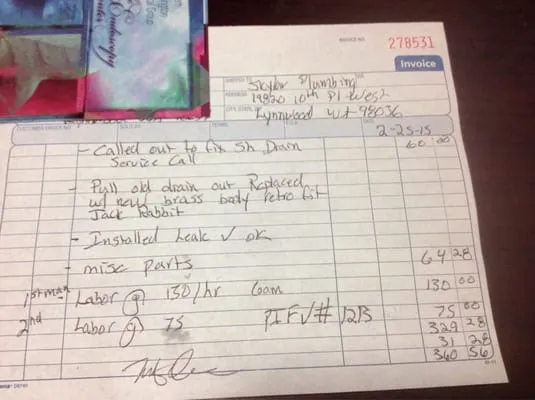 INVOICE NO.
278531
Invoice
Skylor Plumbing
ADDRESS 19820 10th Pl West
CITY, STATE, ZIP Lynnwood WA 98036
CUSTOMER ORDER NO. SOLD BY TERMS
2-25-15
- Called out to fix Sh Drain 60 00
Service Call
- Pull old drain out Replaced
w/ new brass body retro fit
Jack Rabbit
- Installed Leak ✓ ok
- misc parts 64 28
1st man Labor @ 130/hr 130 00
2nd Labor @ 75 75 00
PIF V# 1213
329 28
31 28
360 56